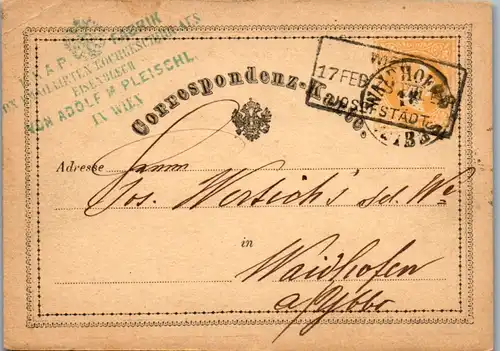 K.K.A.P. FABRIK
VON EMAILLIRTEN KOCHGESCHIRR AUS
EISENBLECH
VON ADOLF M PLEISCHL
IN WIEN
Correspondenz-Karte.
WIEN
17 FEB
JOSEFSTADT
WAIDHOFEN
18
2
73
Adresse Herrn
Jos. Wertich's sel. We
in
Waidhofen
a/Ybbs